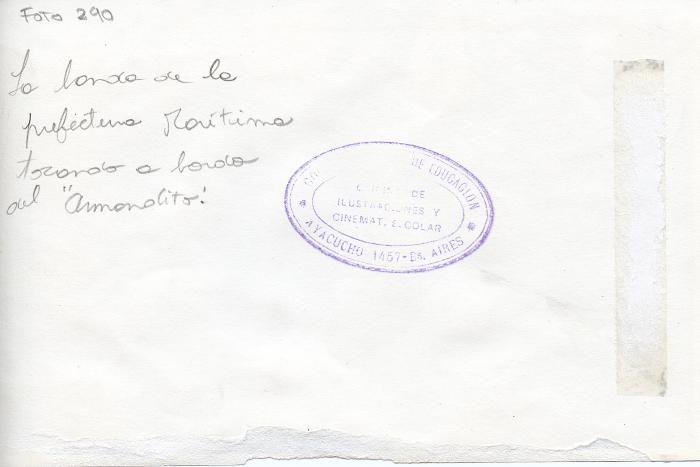 Foto 290
La banda de la
prefectura Marítima
tocando a bordo
del "Armandito".
DE EDUCACION
DE
ILUSTRACIONES Y
CINEMAT. ESCOLAR
AYACUCHO 1457 - Bs. AIRES